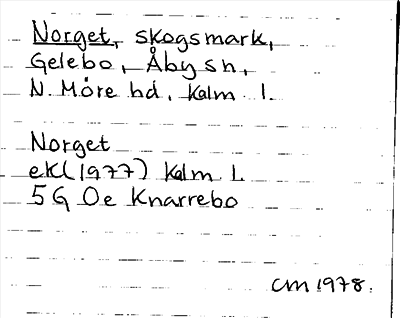 Norget, skogsmark,
Gelebo, Åby sn,
N. Möre hd, Kalm l.
Norget
ekl(1977) Kalm L
5G Oe Knarrebo
CM 1978.